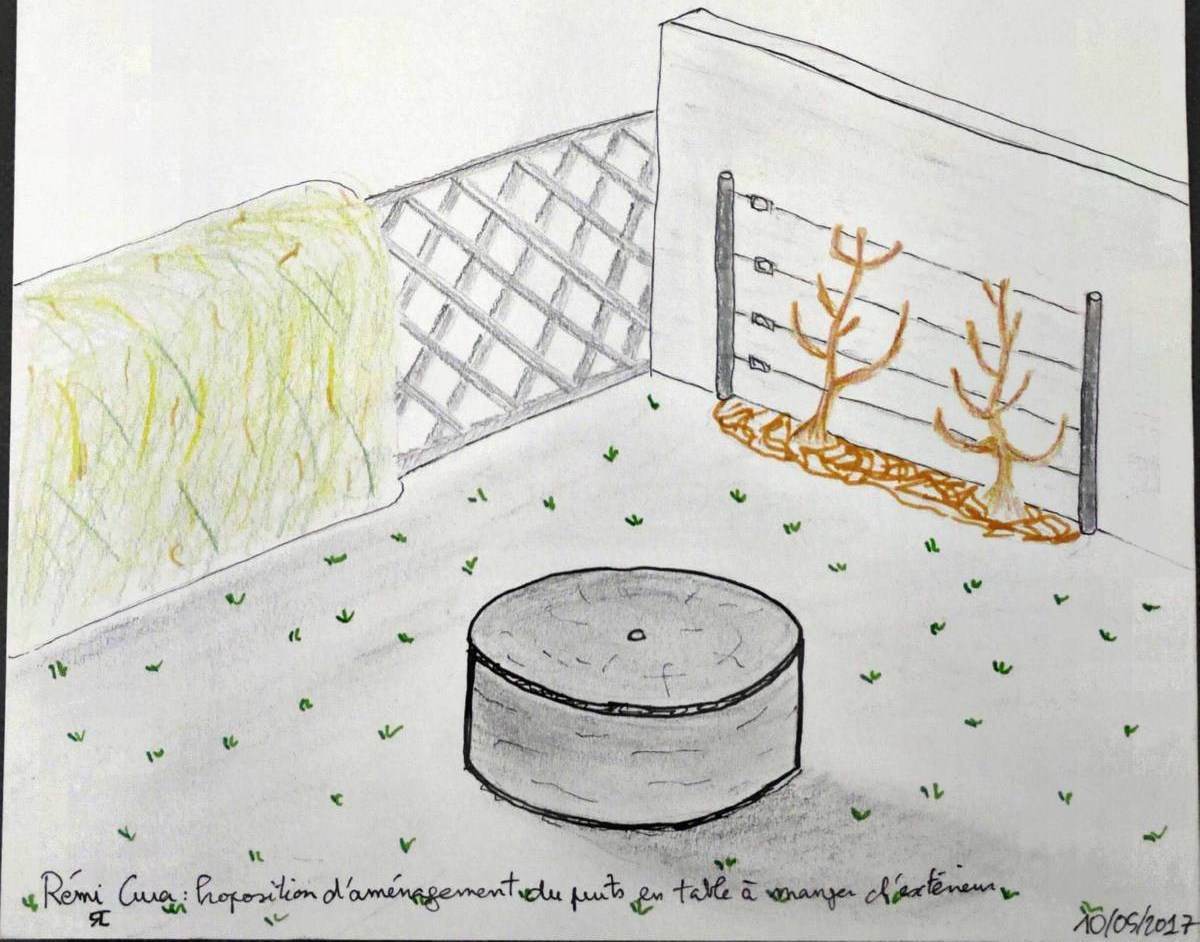 Rémi Cura : Proposition d'aménagement du puits en table à manger d'extérieur
10/05/2017